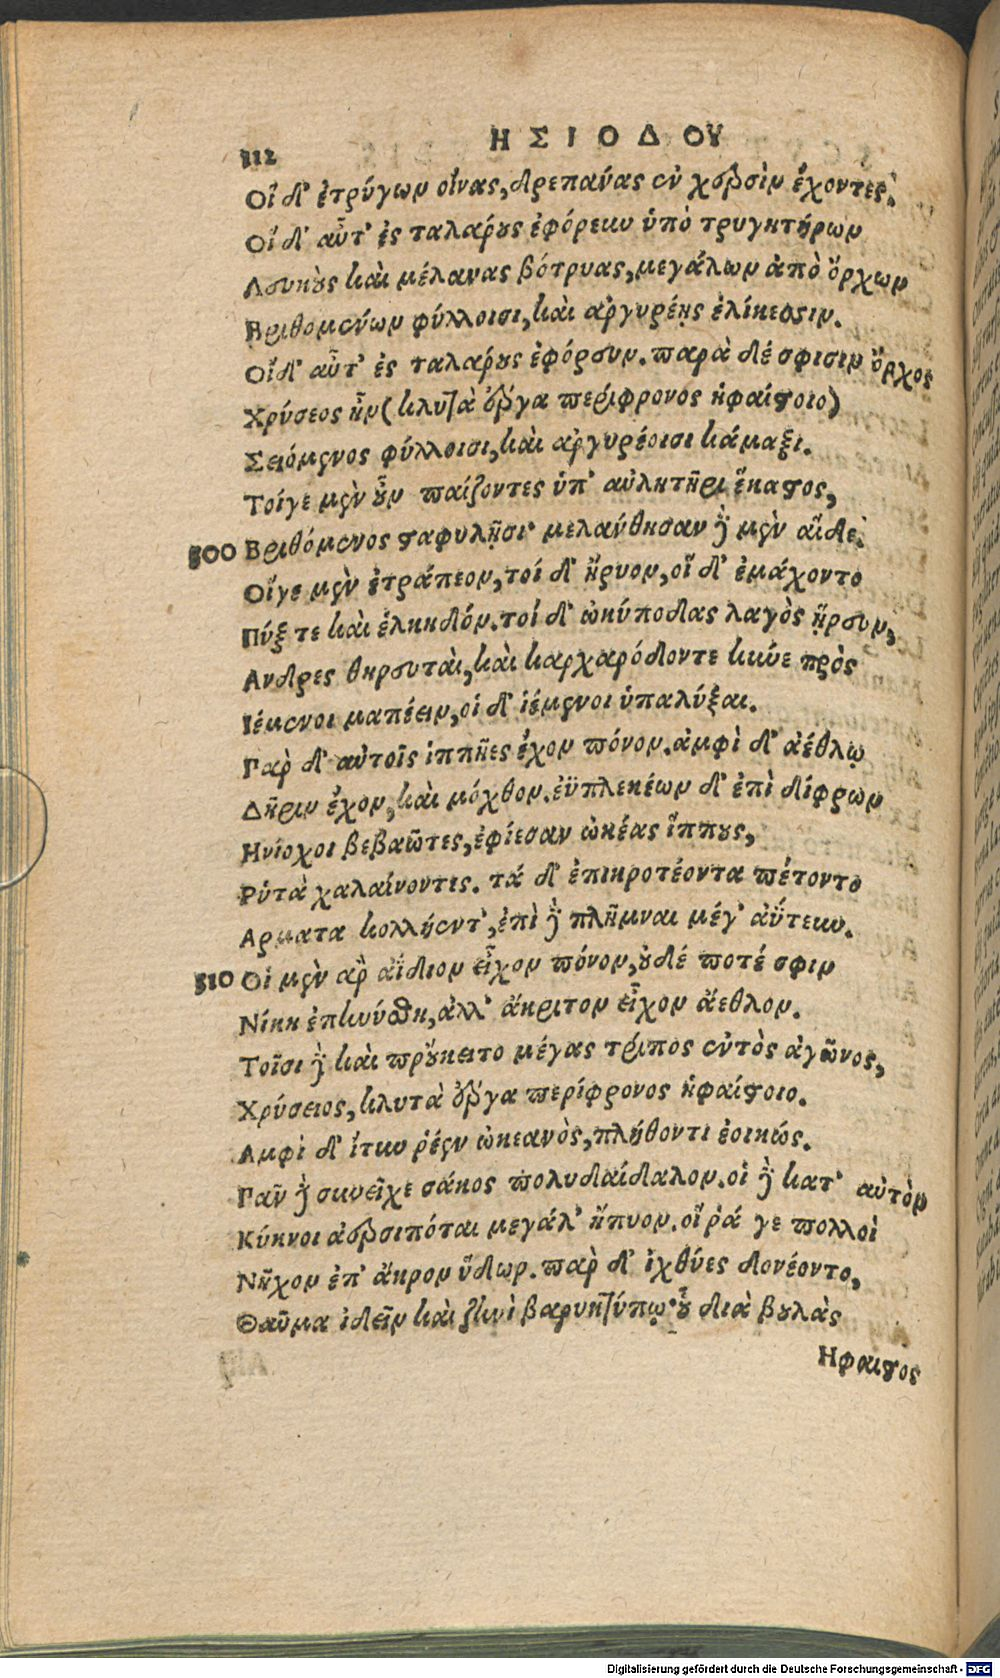 112
ΗΣΙΟΔΟΥ
Οἵ δ' ἐτρύγων οἴνας, δρεπάνας ἐν χερσὶν ἔχοντες.
Οἵ δ' αὖτ' ἐς ταλάρους ἐφόρευν ὑπὸ τρυγητήρων
Λευκοὺς καὶ μέλανας βότρυας, μεγάλων ἀπὸ ὄρχων
Βριθομένων φύλλοισι, καὶ ἀργυρέῃς ἑλίκεσσιν.
Οἵδ' αὖτ' ἐς ταλάρους ἐφόρευν. παρὰ δέ σφισιν ὄρχος
Χρύσεος ἦν (κλυτὰ ἔργα περίφρονος ἡφαίστοιο)
Σειόμενος φύλλοισι, καὶ ἀργυρέοισι κάμαξι.
Τοίγε μὲν οὖν παίζοντες ὑπ' αὐλητῆρι ἕκαστος,
300 Βριθόμενος σταφυλῇσι· μελάνθησαν γε μὲν αἵδε.
Οἵγε μὲν ἐτράπεον, τοί δ' ἤρυον, οἵ δ' ἐμάχοντο
Πύξ τε καὶ ἑλκηδόν. τοί δ' ὠκύποδας λαγὸς ᾕρευν,
Ανδρες θηρευταὶ, καὶ καρχαρόδοντε κύνε πρὸς
Ιέμενοι μαπέειν, οἱ δ' ἱέμενοι ὑπαλύξαι.
Γαρ δ' αὐτοῖς ἱππῆες ἔχον πόνον. ἀμφὶ δ' ἀέθλῳ
Δῆριν ἔχον, καὶ μόχθον. ἐϋπλεκέων δ' ἐπὶ δίφρων
Ηνίοχοι βεβαῶτες, ἐφίεσαν ὠκέας ἵππους,
Ρὑτὰ χαλαίνοντες. τά δ' ἐπικροτέοντα πέτοντο
Αρματα κολλήεντ', ἐπὶ δὲ πλῆμναι μέγ' ἀΰτευν.
310 Οἱ μὲν ἂρ ἀΐδιον εἶχον πόνον, οὐδέ ποτέ σφιν
Νίκη ἐπηνύσθη, ἀλλ' ἄκριτον εἶχον ἄεθλον.
Τοῖσι δὲ καὶ προὔκειτο μέγας τρίπος ἐντὸς ἀγῶνος,
Χρύσειος, κλυτὰ ἔργα περίφρονος ἡφαίστοιο.
Αμφὶ δ' ἴτυν ῥέεν ὠκεανὸς, πλήθοντι ἐοικώς.
Γᾶν δὲ συνεῖχε σάκος πολυδαίδαλον. οἱ δὲ κατ' αὐτὸν
Κύκνοι ἀερσιπόται μεγάλ' ἤπυον. οἵ ῥά γε πολλοὶ
Νῆχον ἐπ' ἄκρον ὕδωρ. παρ δ' ἰχθύες δονέοντο,
Θαῦμα ἰδεῖν καὶ ζηνὶ βαρυκτύπῳ· οὗ διὰ βουλὰς
Ηφαιστος
Digitalisierung gefördert durch die Deutsche Forschungsgemeinschaft - DFG